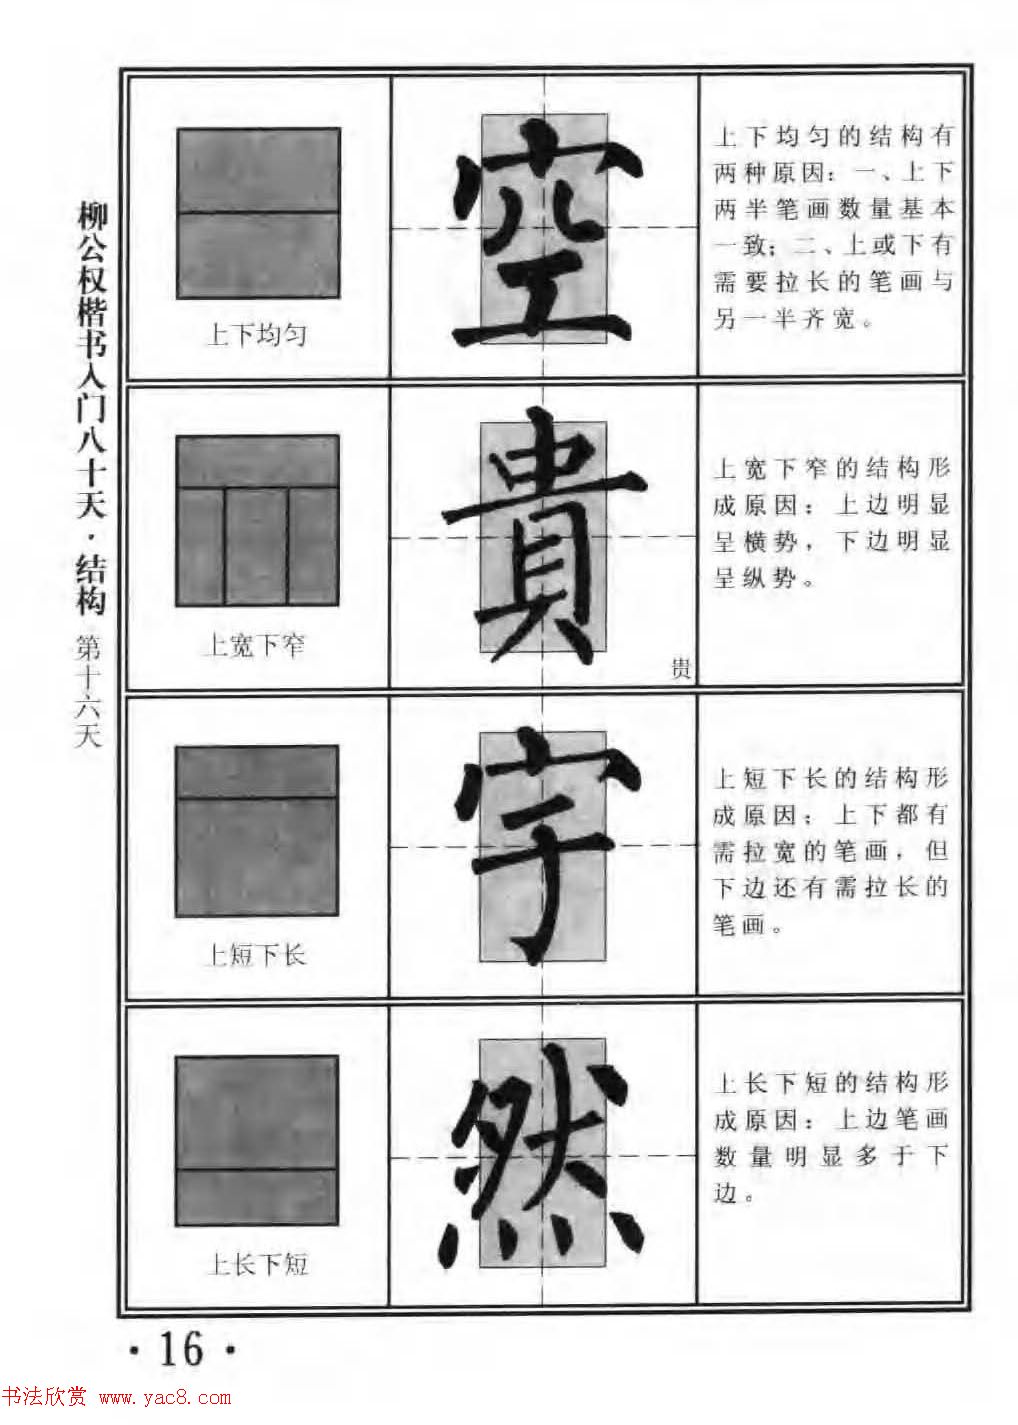 柳公权楷书入门八十天·结构 第十六天
上下均匀
空
上下均匀的结构有
两种原因：一、上下
两半笔画数量基本
一致；二、上或下有
需要拉长的笔画与
另一半齐宽。
上宽下窄
貴
贵
上宽下窄的结构形
成原因：上边明显
呈横势，下边明显
呈纵势。
上短下长
字
上短下长的结构形
成原因；上下都有
需拉宽的笔画，但
下边还有需拉长的
笔画。
上长下短
然
上长下短的结构形
成原因：上边笔画
数量明显多于下
边。
·16·
书法欣赏 www.yac8.com